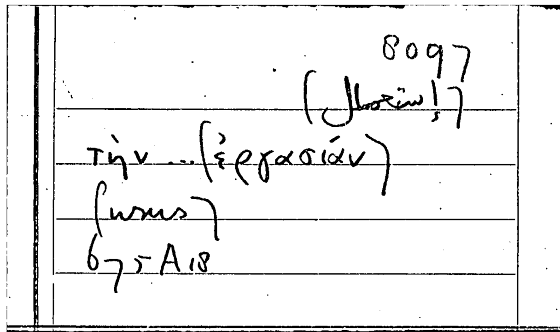 8097
[إستعمال]
τὴν ... [ἐργασίαν]
[usus]
675 A 18